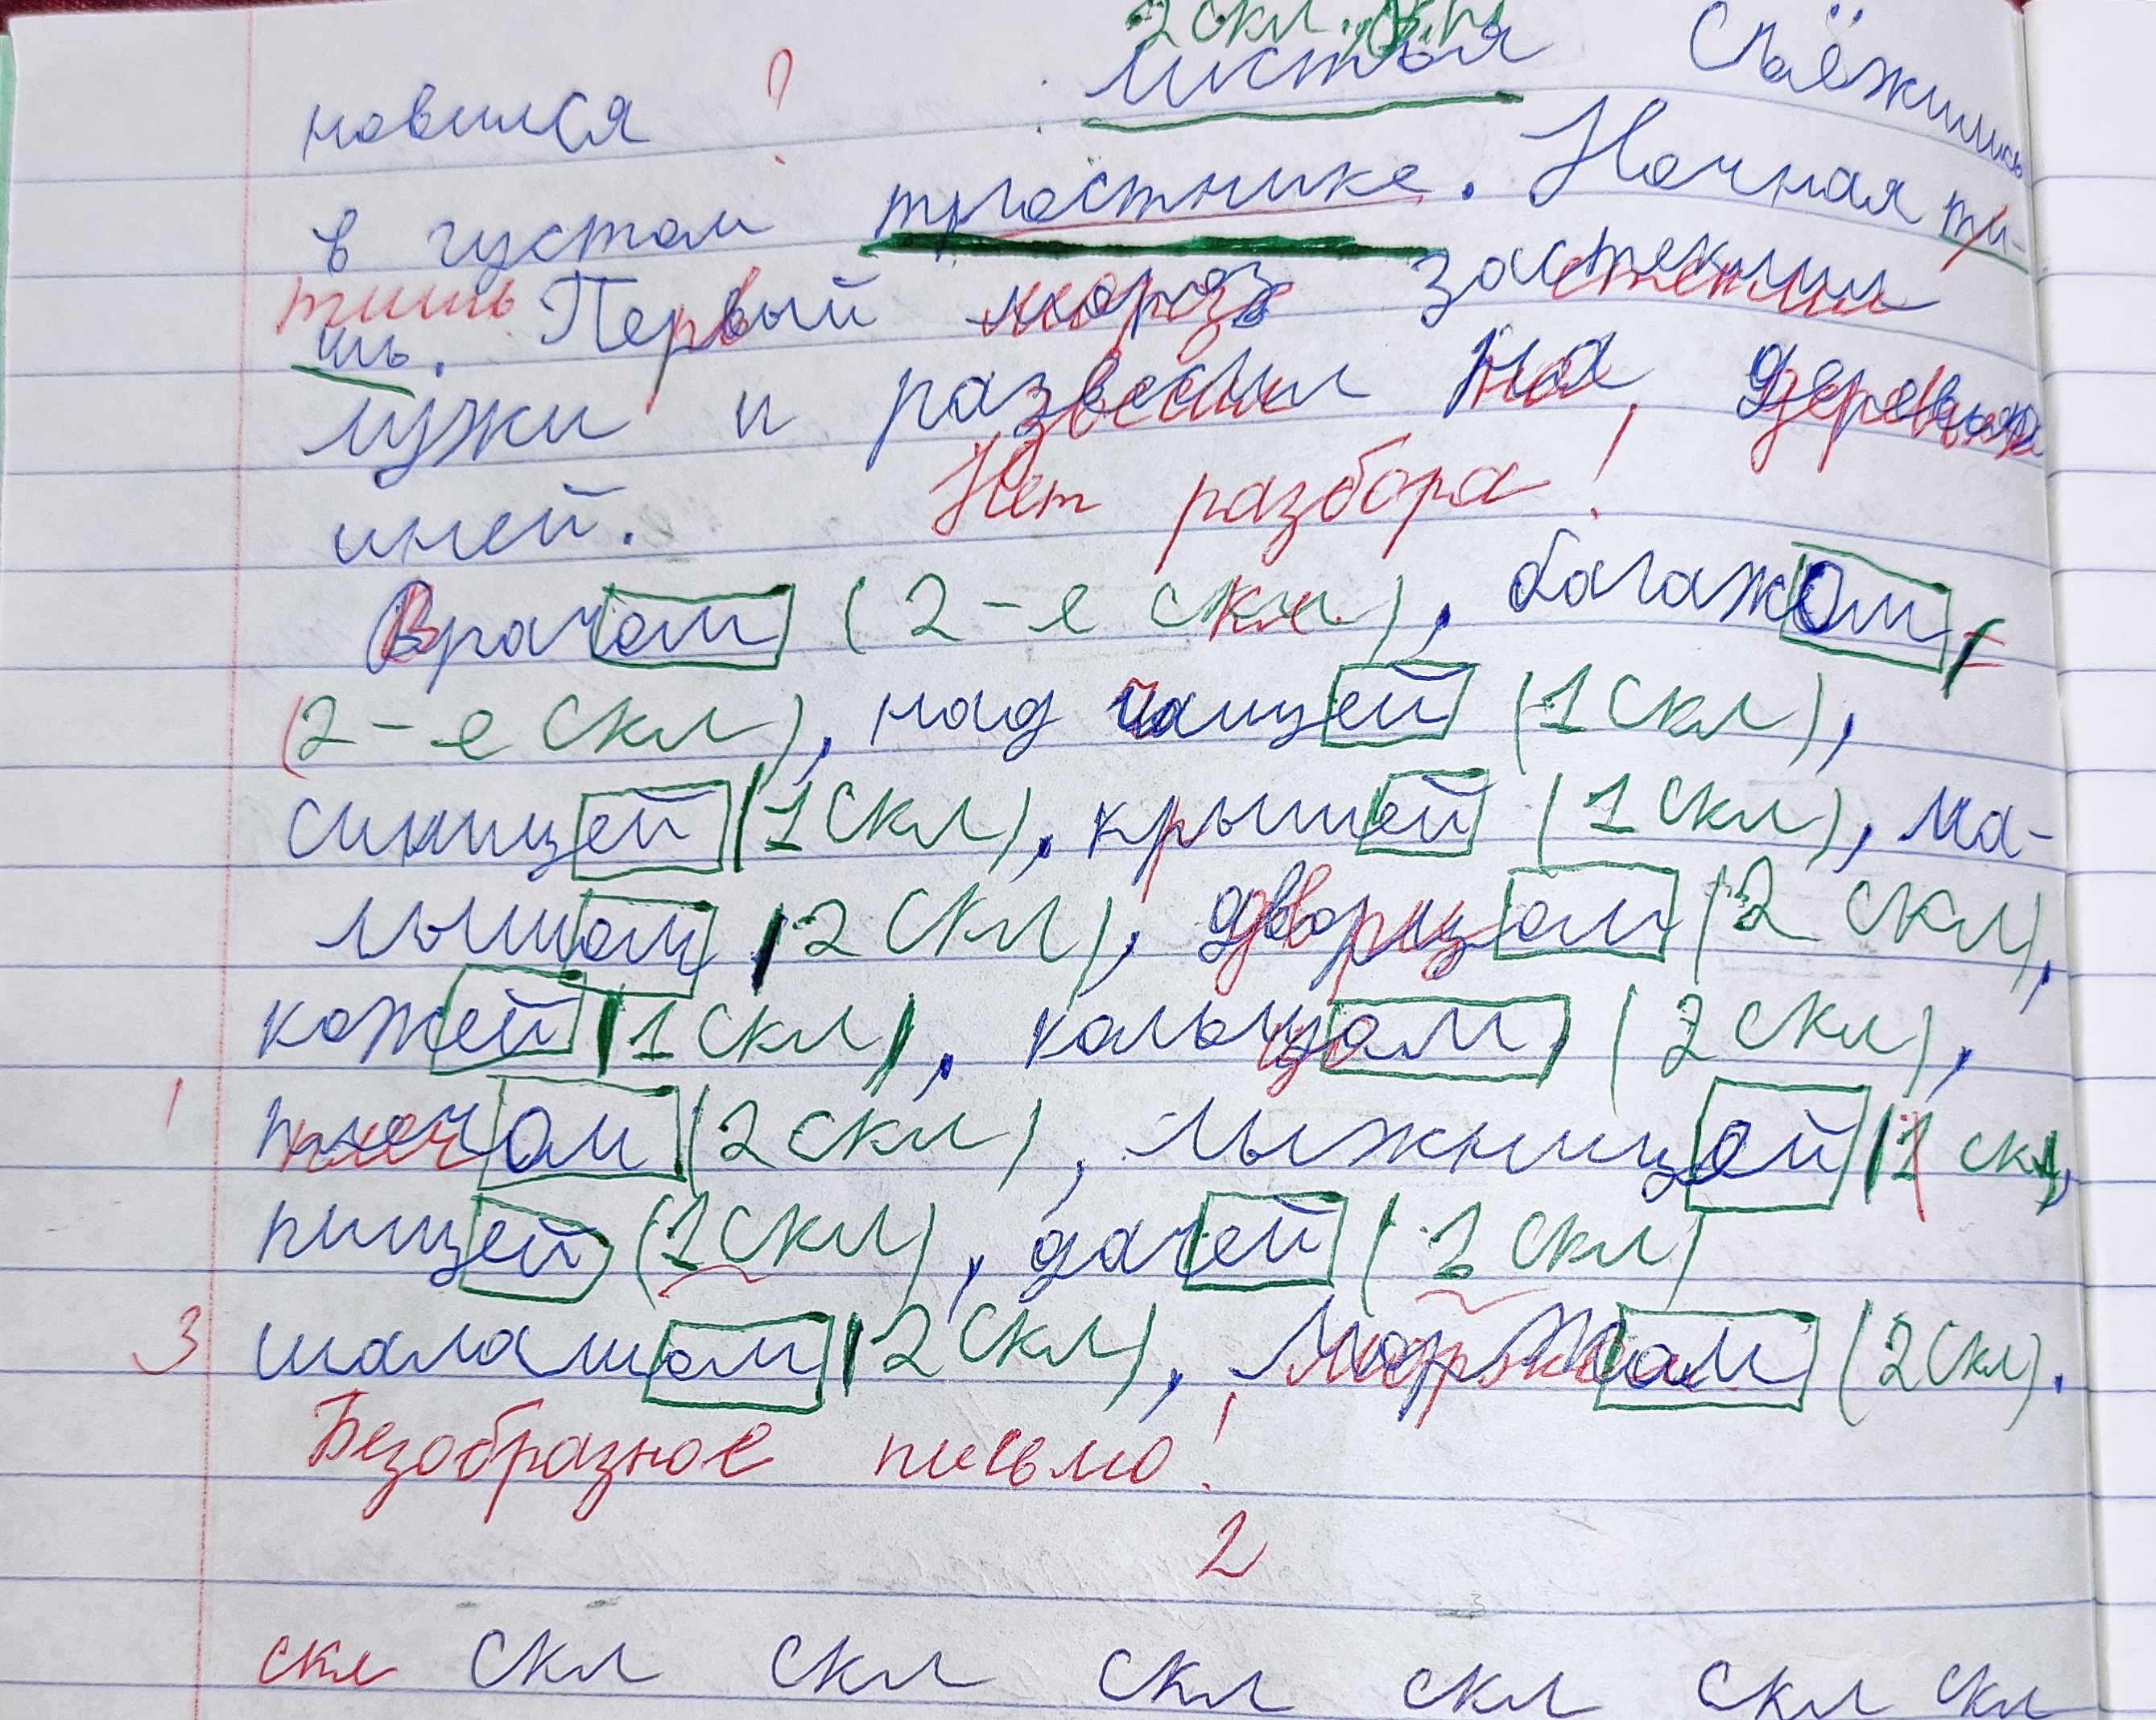 2 скл.
новился ? листья Съёжились
в густом тростнике. Ночная ти-
тишь
шь. Первый мороз застеклил
лужи и развесил на деревьях
иней. Нет разбора!
Врачом (2-е скл), багажом,
(2-е скл), над чащей (1 скл),
синицей (1 скл), крышей (1 скл), ма-
лышом (2 скл), дворцом (2 скл),
кожей (1 скл), кольцом (2 скл),
1 плечом (2 скл), лыжницей (1 скл),
пищей (1 скл), дачей (1 скл)
3 шалашом (2 скл), Моржом (2 скл).
Безобразное письмо!
2
скл скл скл скл скл скл скл